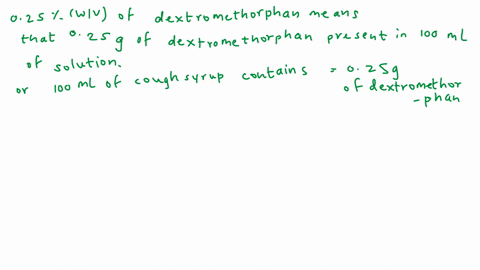 0.25 % (W/V) of dextromethorphan means
that 0.25 g of dextromethorphan present in 100 mL
of solution.
or 100 mL of cough syrup contains = 0.25g
of dextromethor
-phan